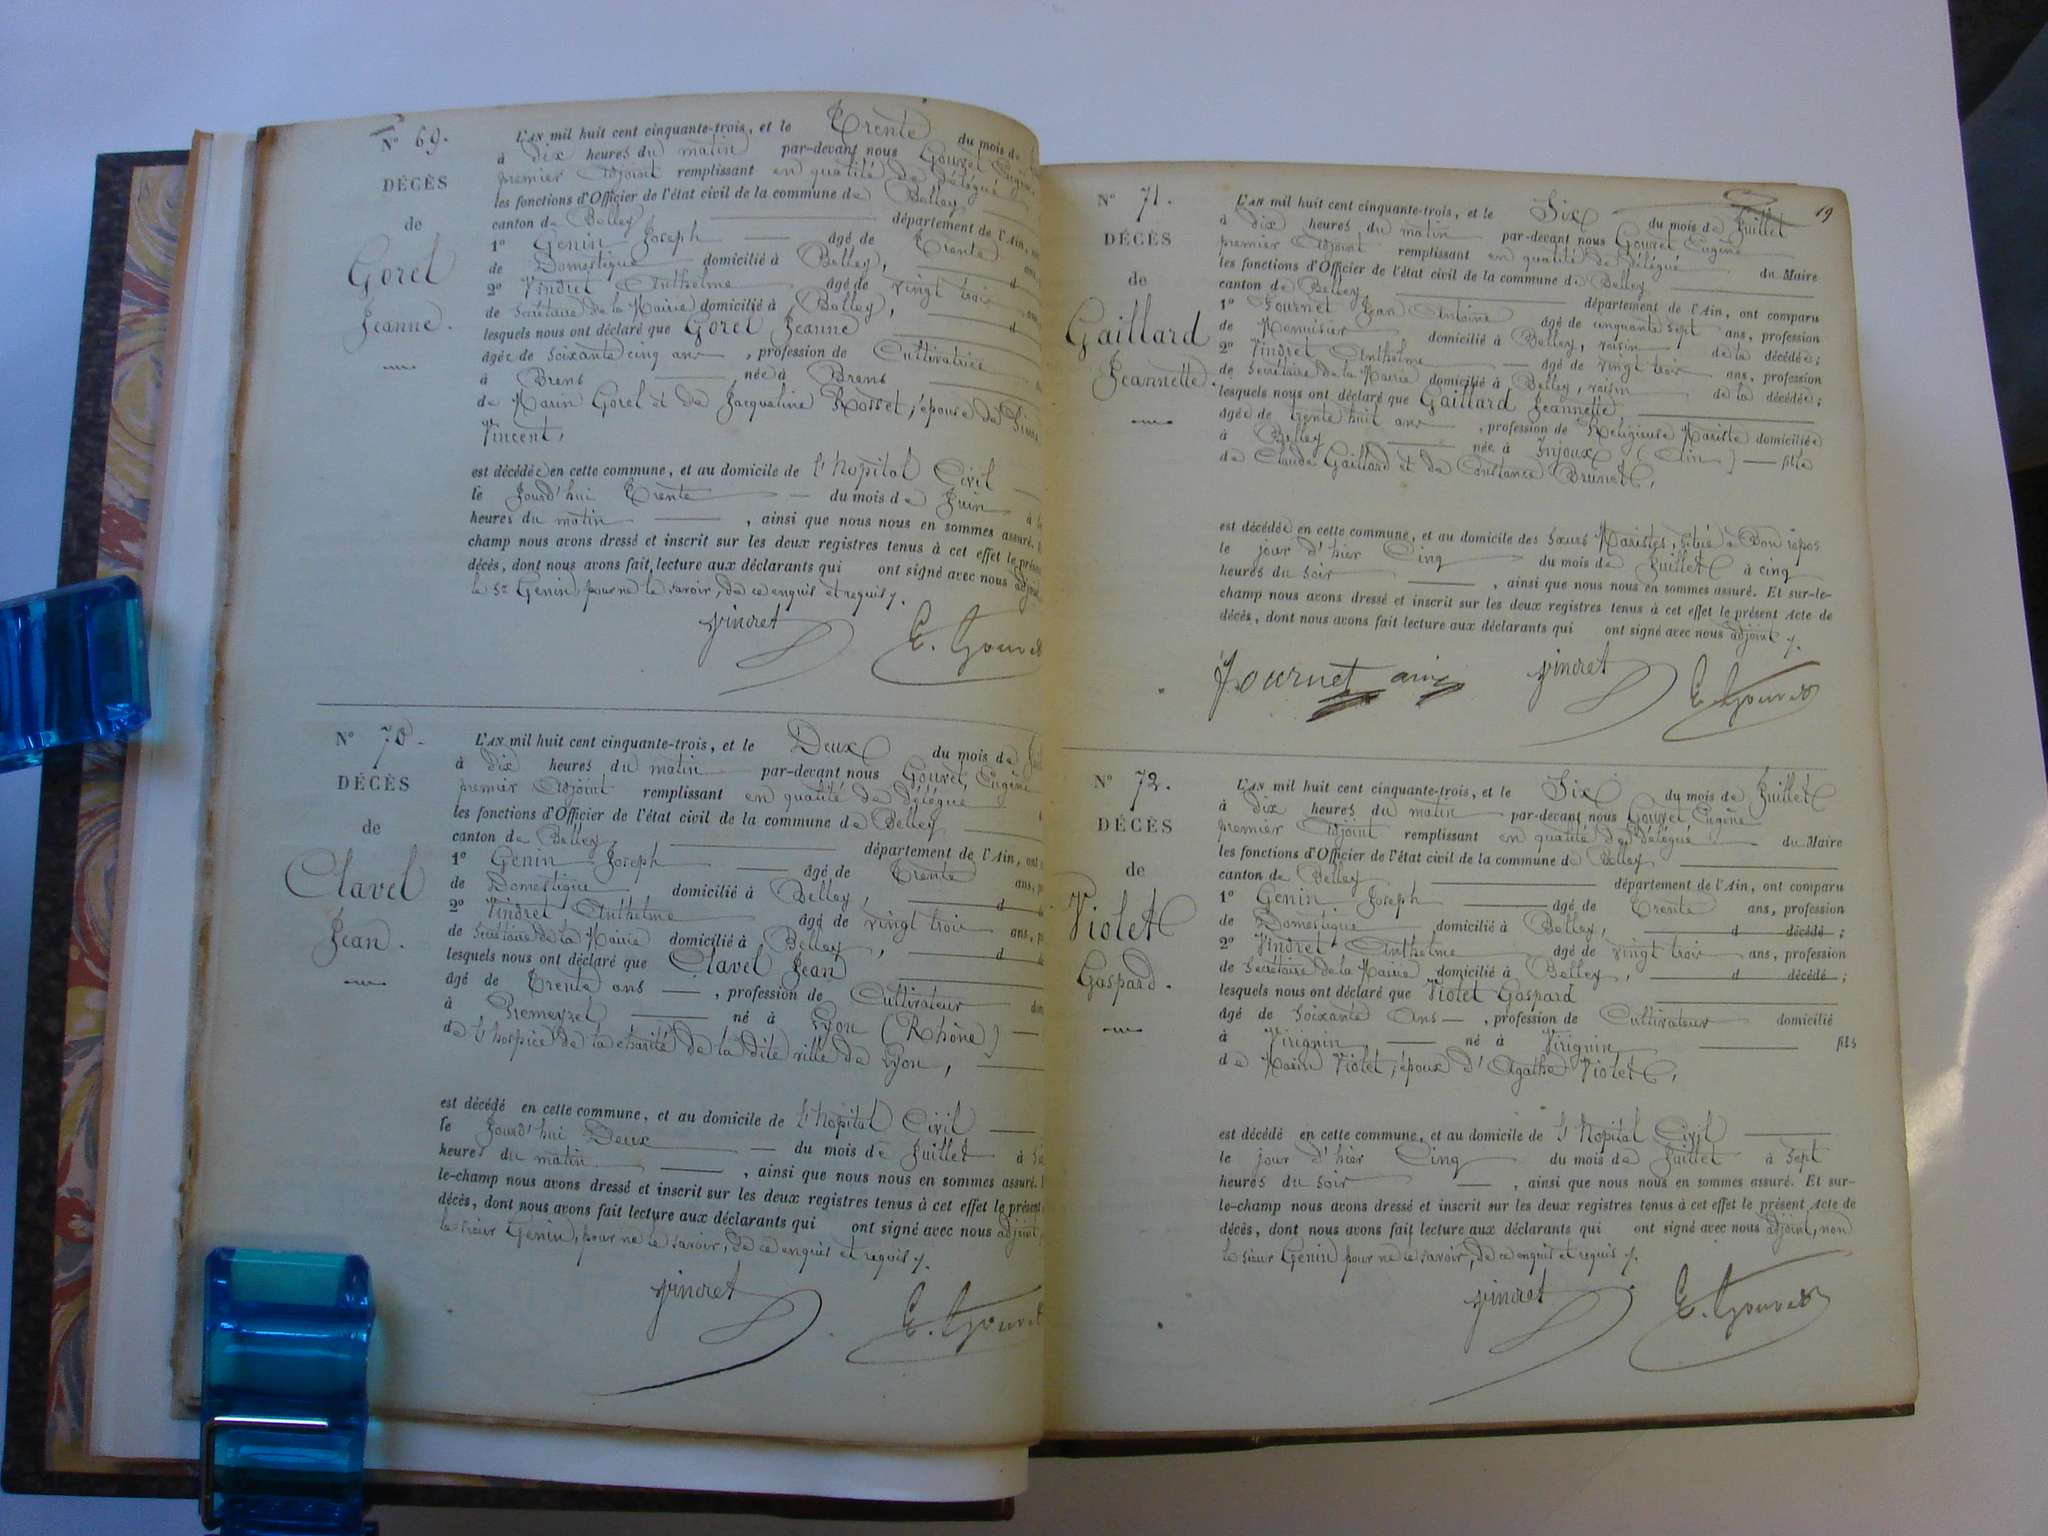 N° 69.
DÉCÈS
de
Gorel
Jeanne.
L'AN mil huit cent cinquante-trois, et le Trente du mois de
à dix heures du matin par-devant nous Gouvet Eugène
premier Adjoint remplissant en qualité de délégué
les fonctions d'Officier de l'état civil de la commune de Belley
canton de Belley département de l'Ain,
1° Genin Joseph âgé de Trente
de Domestique domicilié à Belley, d
2° Vindret Anthelme âgé de vingt trois
de Secrétaire de la Mairie domicilié à Belley, d
lesquels nous ont déclaré que Gorel Jeanne
âgée de soixante cinq ans, profession de Cultivatrice
à Brens née à Brens
de Marin Gorel et de Jacqueline Rosset, épouse de
Vincent,
est décédée en cette commune, et au domicile de l'hopital Civil
le Jourd'hui Trente du mois de Juin à
heures du matin, ainsi que nous nous en sommes assuré.
champ nous avons dressé et inscrit sur les deux registres tenus à cet effet le présent
décès, dont nous avons fait lecture aux déclarants qui ont signé avec nous adjoint
le Sr Genin, pour ne le savoir, de ce enquis et requis /.
Vindret E. Gouvet
N° 70.
DÉCÈS
de
Clavel
Jean.
L'AN mil huit cent cinquante-trois, et le Deux du mois de
à dix heures du matin par-devant nous Gouvet Eugène
premier Adjoint remplissant en qualité de délégué
les fonctions d'Officier de l'état civil de la commune de Belley
canton de Belley département de l'Ain, ont
1° Genin Joseph âgé de Trente ans,
de Domestique, domicilié à Belley, d
2° Vindret Anthelme âgé de vingt trois ans,
de Secrétaire de la Mairie domicilié à Belley, d
lesquels nous ont déclaré que Clavel Jean
âgé de Trente ans, profession de Cultivateur
à Premeyzel né à Lyon (Rhône)
de l'hospice de la charité de la dite ville de Lyon,
est décédé en cette commune, et au domicile de l'hopital Civil
le Jourd'hui Deux du mois de Juillet à
heures du matin, ainsi que nous nous en sommes assuré.
le-champ nous avons dressé et inscrit sur les deux registres tenus à cet effet le présent
décès, dont nous avons fait lecture aux déclarants qui ont signé avec nous adjoint
le sieur Genin, pour ne le savoir, de ce enquis et requis /.
Vindret E. Gouvet
19
N° 71.
DÉCÈS
de
Gaillard
Jeannette.
L'AN mil huit cent cinquante-trois, et le Six du mois de Juillet
à dix heures du matin par-devant nous Gouvet Eugène
premier Adjoint remplissant en qualité de délégué du Maire
les fonctions d'Officier de l'état civil de la commune de Belley
canton de Belley département de l'Ain, ont comparu
1° Journet Jean Antoine âgé de cinquante sept ans, profession
de Menuisier domicilié à Belley, voisin de la décédée;
2° Vindret Anthelme âgé de vingt trois ans, profession
de Secrétaire de la Mairie domicilié à Belley, voisin de la décédée;
lesquels nous ont déclaré que Gaillard Jeannette,
âgée de trente huit ans, profession de Religieuse Mariste domiciliée
à Belley née à Injoux (Ain) fille
de Claude Gaillard et de Constance Brunet,
est décédée en cette commune, et au domicile des Sœurs Maristes, situé à Bon repos
le jour d'hier Cinq du mois de Juillet à cinq
heures du soir, ainsi que nous nous en sommes assuré. Et sur-le-
champ nous avons dressé et inscrit sur les deux registres tenus à cet effet le présent Acte de
décès, dont nous avons fait lecture aux déclarants qui ont signé avec nous adjoint /.
Journet ainé Vindret E. Gouvet
N° 72.
DÉCÈS
de
Violet
Gaspard.
L'AN mil huit cent cinquante-trois, et le Six du mois de Juillet
à dix heures du matin par-devant nous Gouvet Eugène
premier Adjoint remplissant en qualité de délégué du Maire
les fonctions d'Officier de l'état civil de la commune de Belley,
canton de Belley département de l'Ain, ont comparu
1° Genin Joseph âgé de Trente ans, profession
de Domestique domicilié à Belley, d décédé;
2° Vindret Anthelme âgé de vingt trois ans, profession
de Secrétaire de la Mairie domicilié à Belley, d décédé;
lesquels nous ont déclaré que Violet Gaspard
âgé de soixante ans, profession de Cultivateur domicilié
à Virignin, né à Virignin fils
de Marin Violet, époux d'Agathe Violet,
est décédé en cette commune, et au domicile de l'hopital Civil
le jour d'hier Cinq du mois de Juillet à sept
heures du soir, ainsi que nous nous en sommes assuré. Et sur-
le-champ nous avons dressé et inscrit sur les deux registres tenus à cet effet le présent Acte de
décès, dont nous avons fait lecture aux déclarants qui ont signé avec nous adjoint, non
le sieur Genin pour ne le savoir, de ce enquis et requis /.
Vindret E. Gouvet